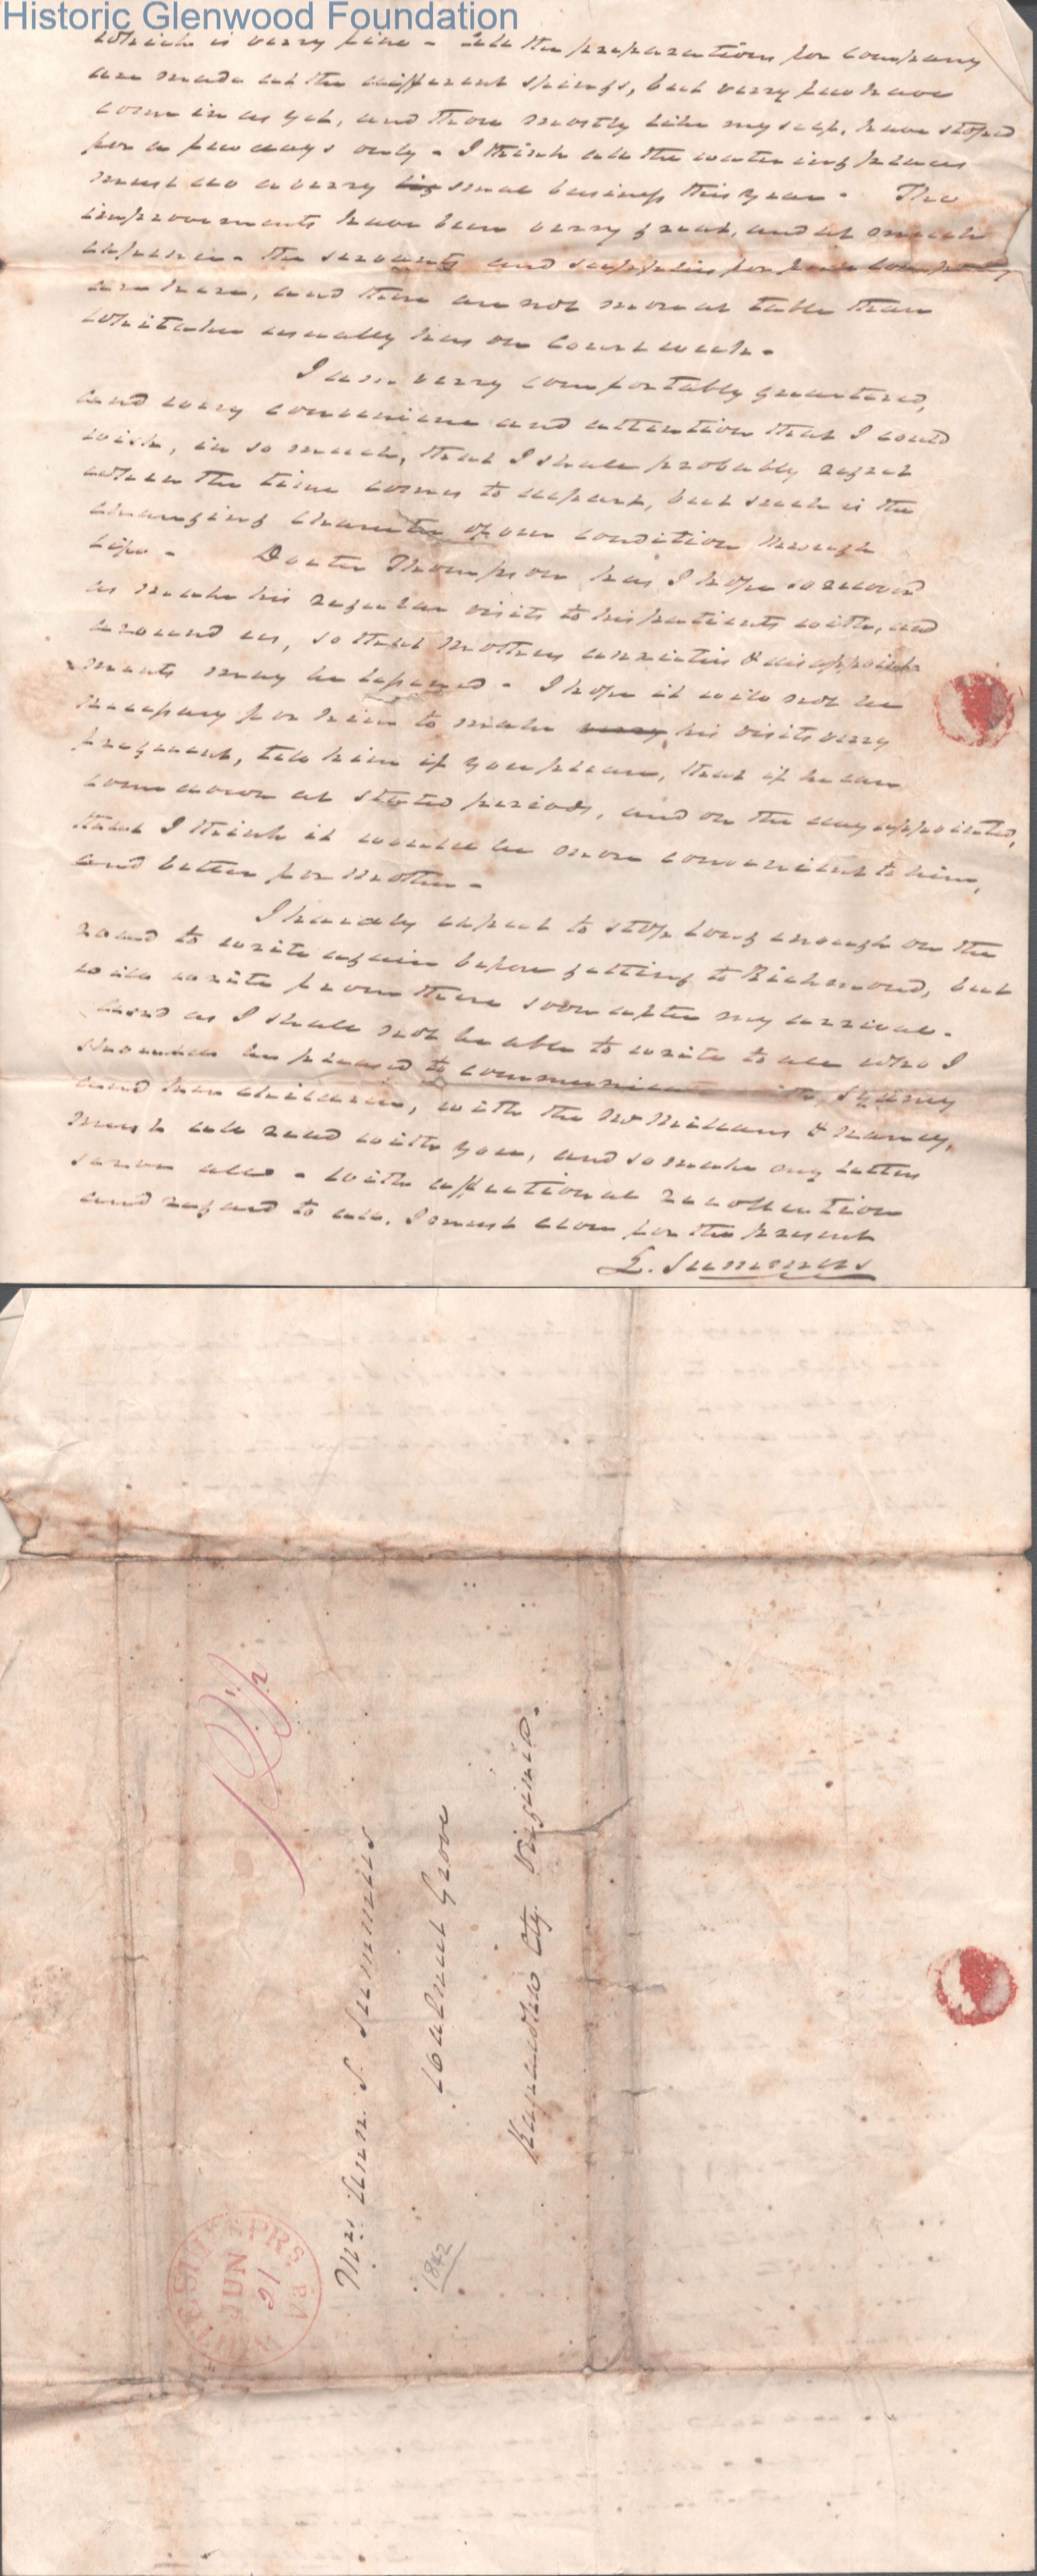 Historic Glenwood Foundation
which is verry fine - All the preparations for company
are made at the different springs, but verry few have
come in as yet, and those mostly like myself, have stoped
for a few days only - I think all the watering places
must do a verry big small business this year - The
improvements have been verry great, and at much
expence - the servants and supplies for company
are here, and there are not more at table than
Whitaker usually has on Court week -
I am verry comfortably quartered,
and every convenience and attention that I could
wish, in so much, that I shall probably regret
when the time comes to depart, but such is the
changing character of our condition through
life - Doctor Thompson has I hope so recovered
as make his regular visits to his patients with, and
around us, so that Mothers anxieties & disappoint-
ments may be lessened - I hope it will not be
necessary for him to make very his visits verry
frequent, tell him if you please, that if he can
come down at stated periods, and on the day appointed,
that I think it would be more convenient to him,
and better for Mother -
I hardly expect to stop long enough on the
road to write again before getting to Richmond, but
will write from there soon after my arrival -
and as I shall not be able to write to all who I
should be pleased to communicate with, Sydney
and her children, with the McMillians & Nancy,
must all read with you, and so make any letter
serve all - with affectionate recollection
and regard to all, I must close for the present
L. Summers
18 1/2
Mrs Ann S. Summers
Walnut Grove
Kanawha Cty. Virginia.
1842
WHITE SULR SPRS VA
JUN
21